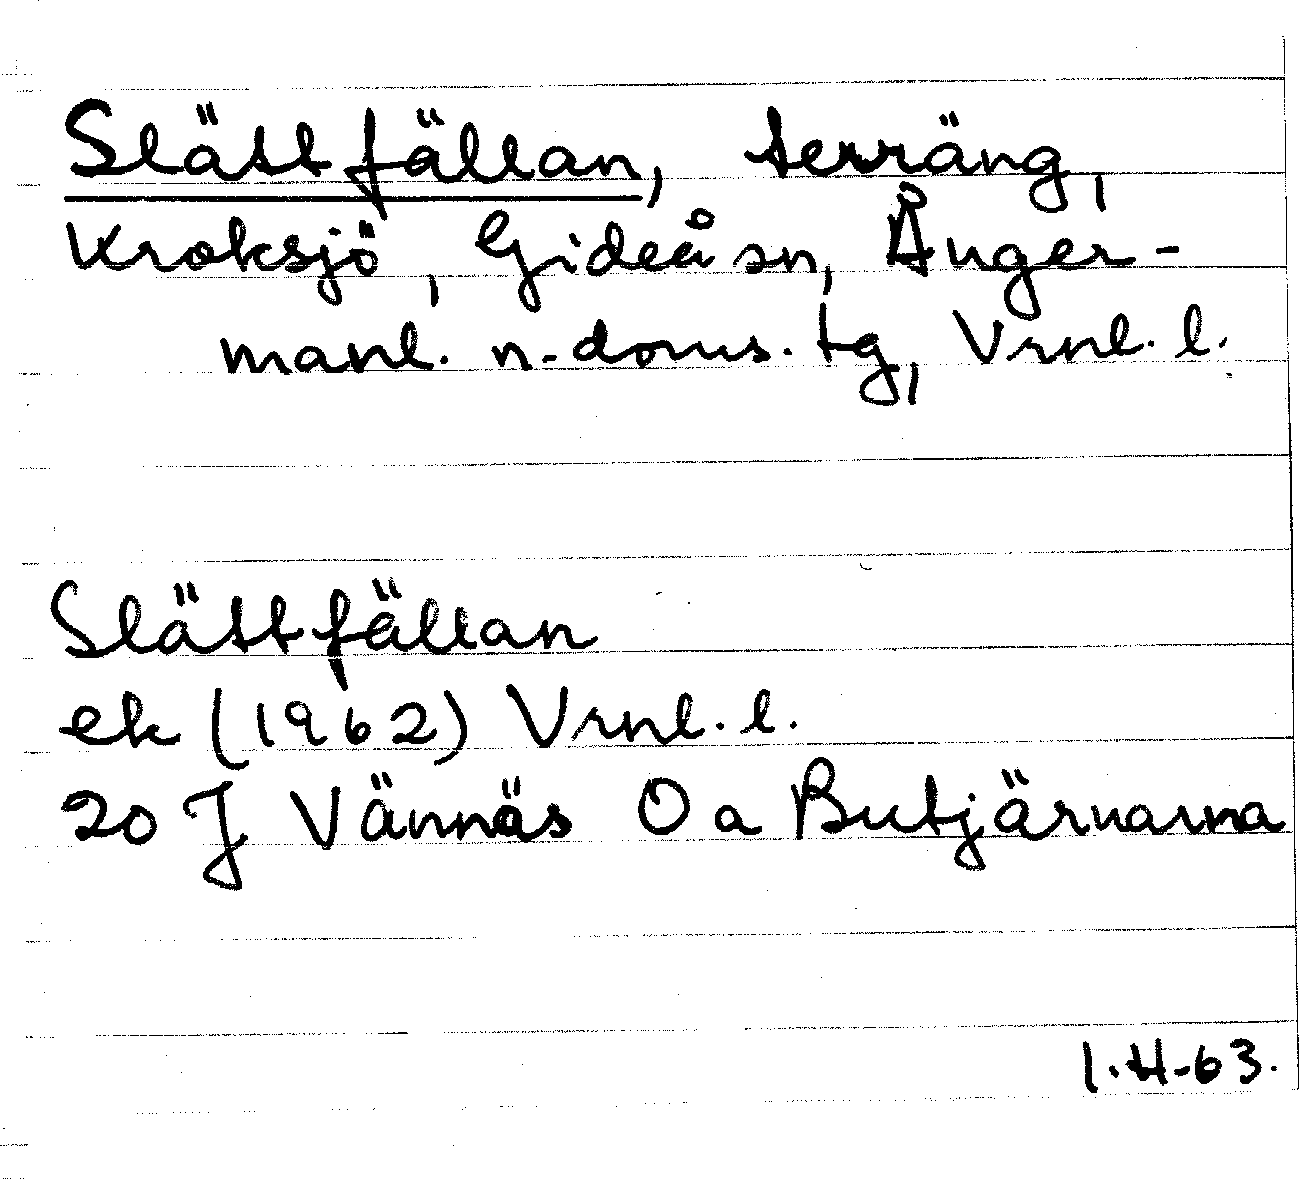 Slättfällan, terräng,
Kroksjö, Gideå sn, Ånger-
manl. n. doms. tg, Vrnl. l.
Slättfällan
ek (1962) Vrnl. l.
20 J Vännäs O a Butjärnarna
I.H-63.